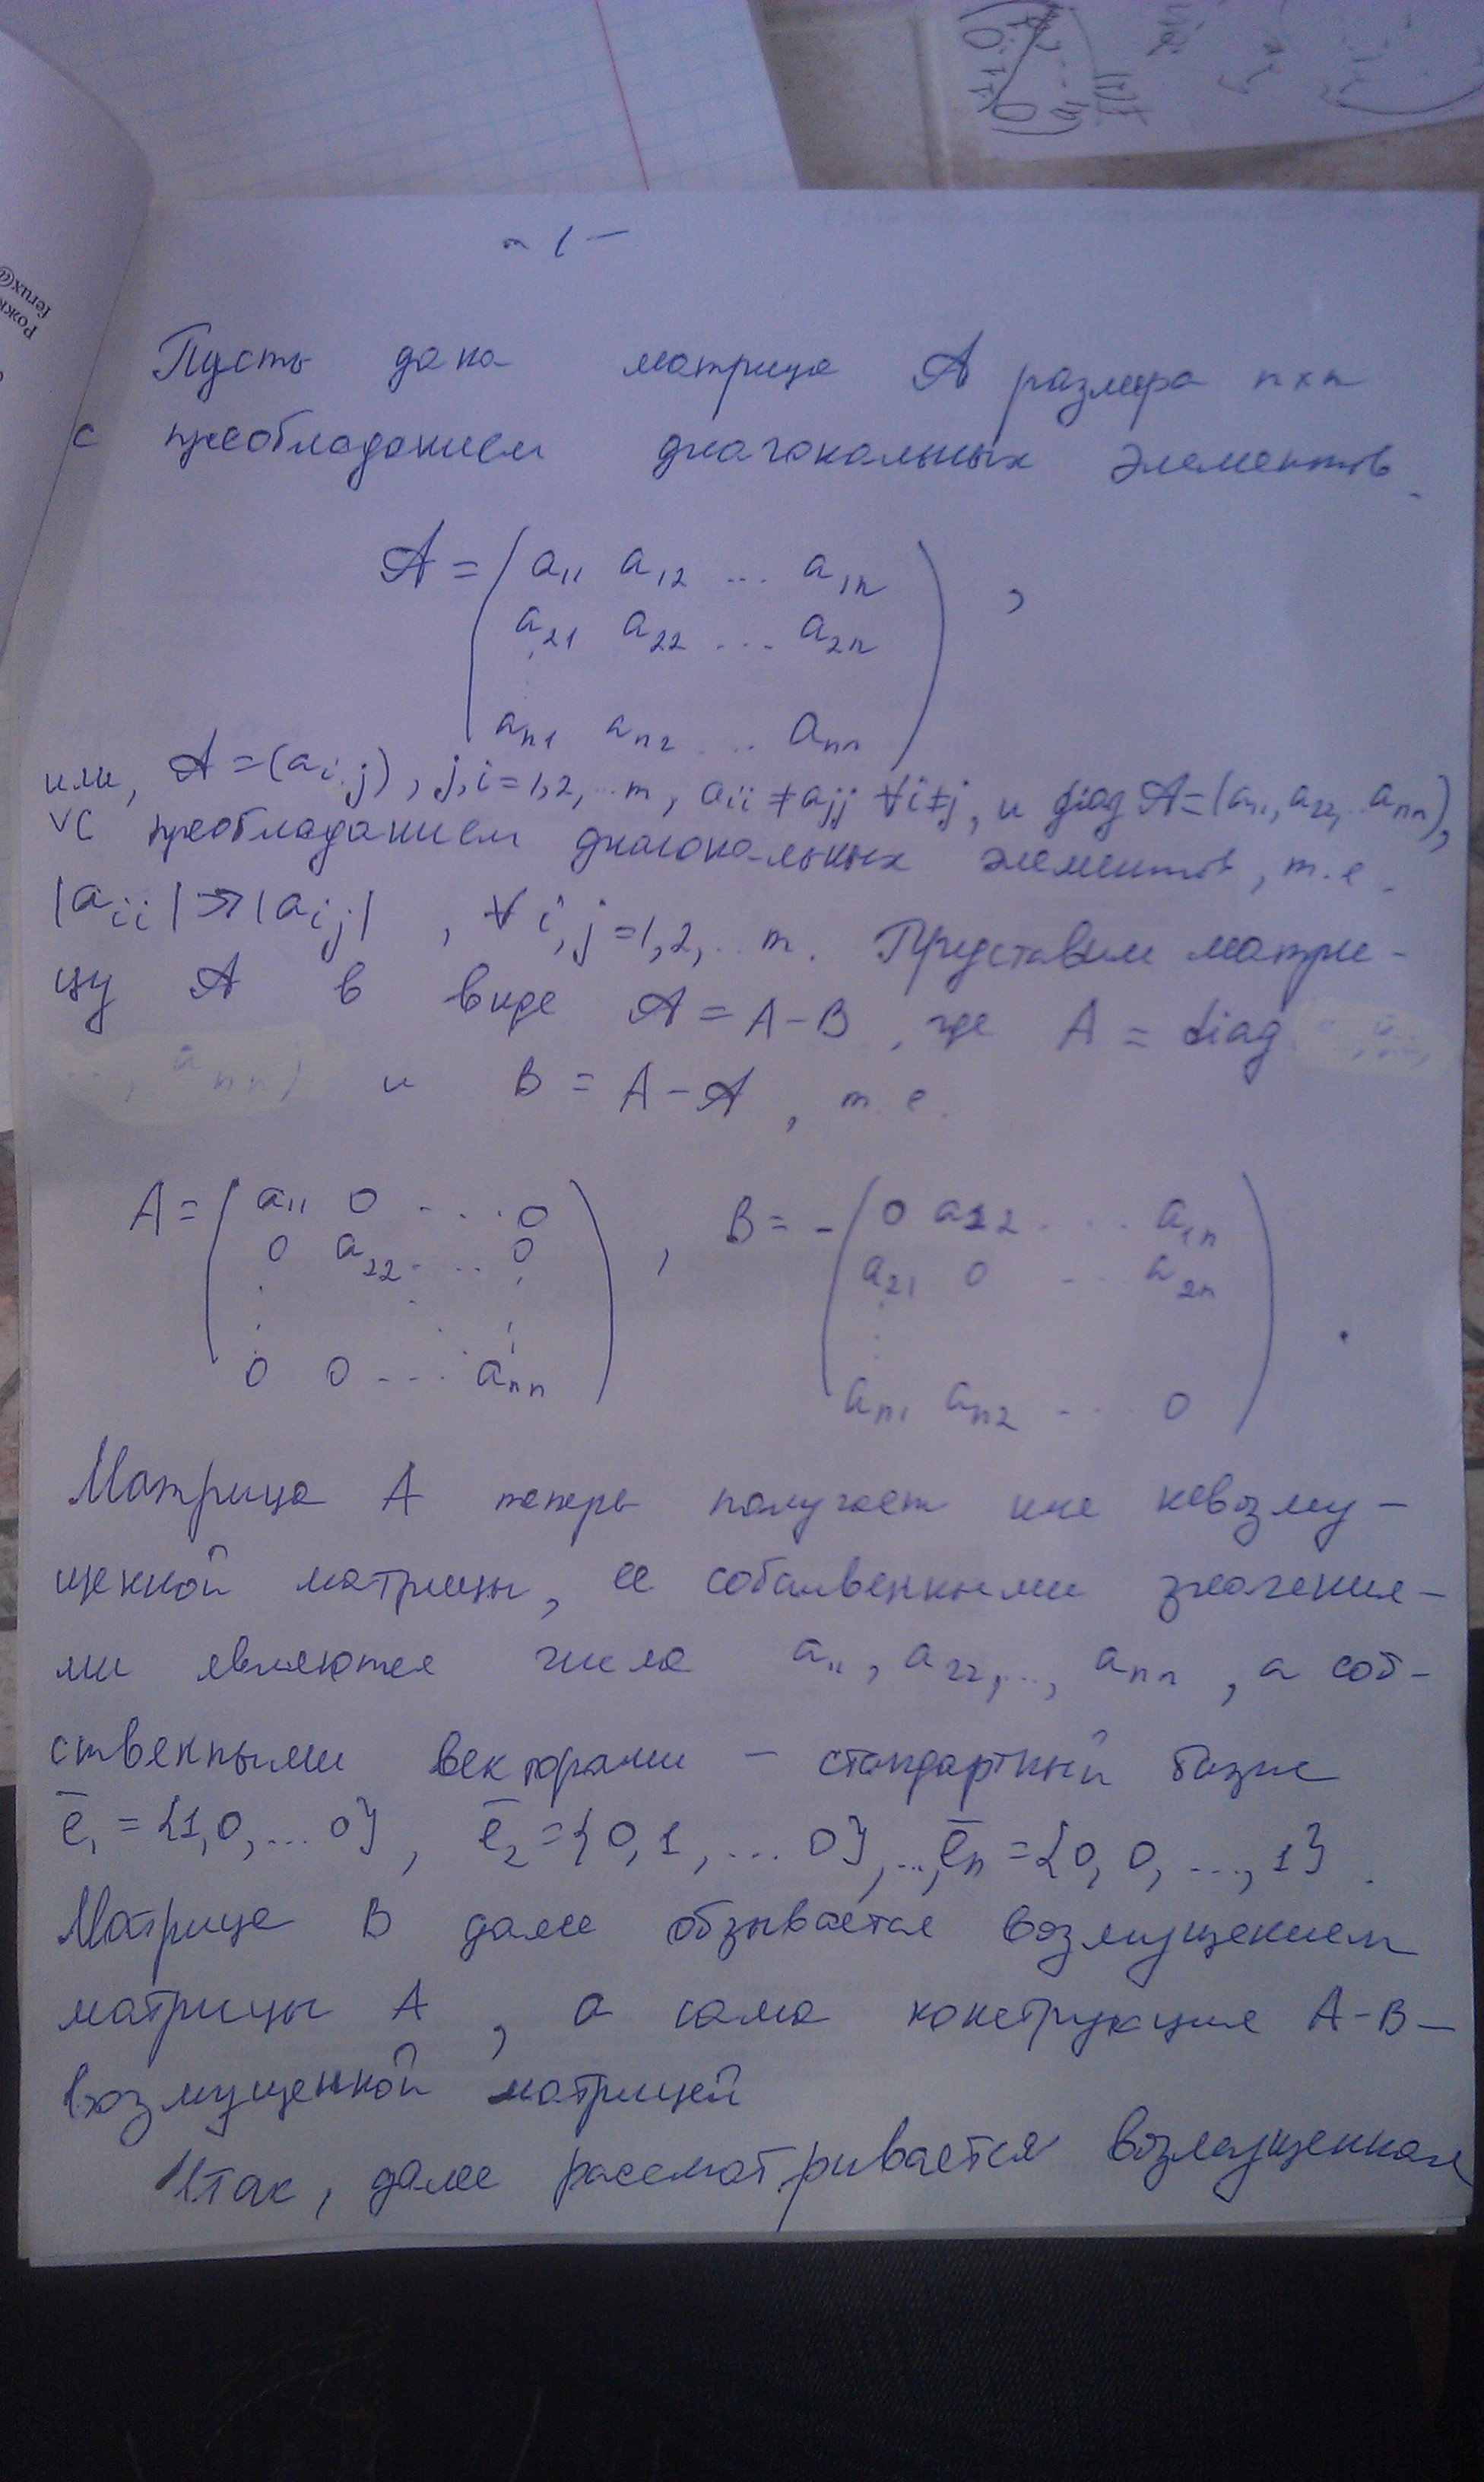 - 1 -
Пусть дана матрица 𝒜 размера n×n
с преобладанием диагональных элементов.
𝒜 = ( a₁₁ a₁₂ ... a₁ₙ
a₂₁ a₂₂ ... a₂ₙ
⋮
aₙ₁ aₙ₂ ... aₙₙ ) ,
или, 𝒜 = (aᵢⱼ), j,i=1,2,...n, aᵢᵢ ≠ aⱼⱼ ∀i≠j, и diag 𝒜 = (a₁₁, a₂₂, ..aₙₙ),
с преобладанием диагональных элементов, т.е.
|aᵢᵢ| >> |aᵢⱼ| , ∀ i,j=1,2,...n. Представим матри-
цу 𝒜 в виде 𝒜 = A-B , где A = diag
..., aₙₙ) и B = A-𝒜 , т.е.
A = ( a₁₁ 0 .... 0 , B = - ( 0 a₁₂ .... a₁ₙ
0 a₂₂ .... 0 a₂₁ 0 ... a₂ₙ
⋮ ⋮
0 0 ... aₙₙ ) aₙ₁ aₙ₂ .... 0 ) .
Матрица A теперь получает имя невозму-
щенной матрицы, ее собственными значения-
ми являются числа a₁₁, a₂₂, ..., aₙₙ , а соб-
ственными векторами – стандартный базис
ē₁ = {1,0,...0} , ē₂ = {0,1,...0},...,ēₙ = {0,0,...,1} .
Матрица B далее обзывается возмущением
матрицы A , а сама конструкция A-B –
возмущенной матрицей
Итак, далее рассматривается возмущенная